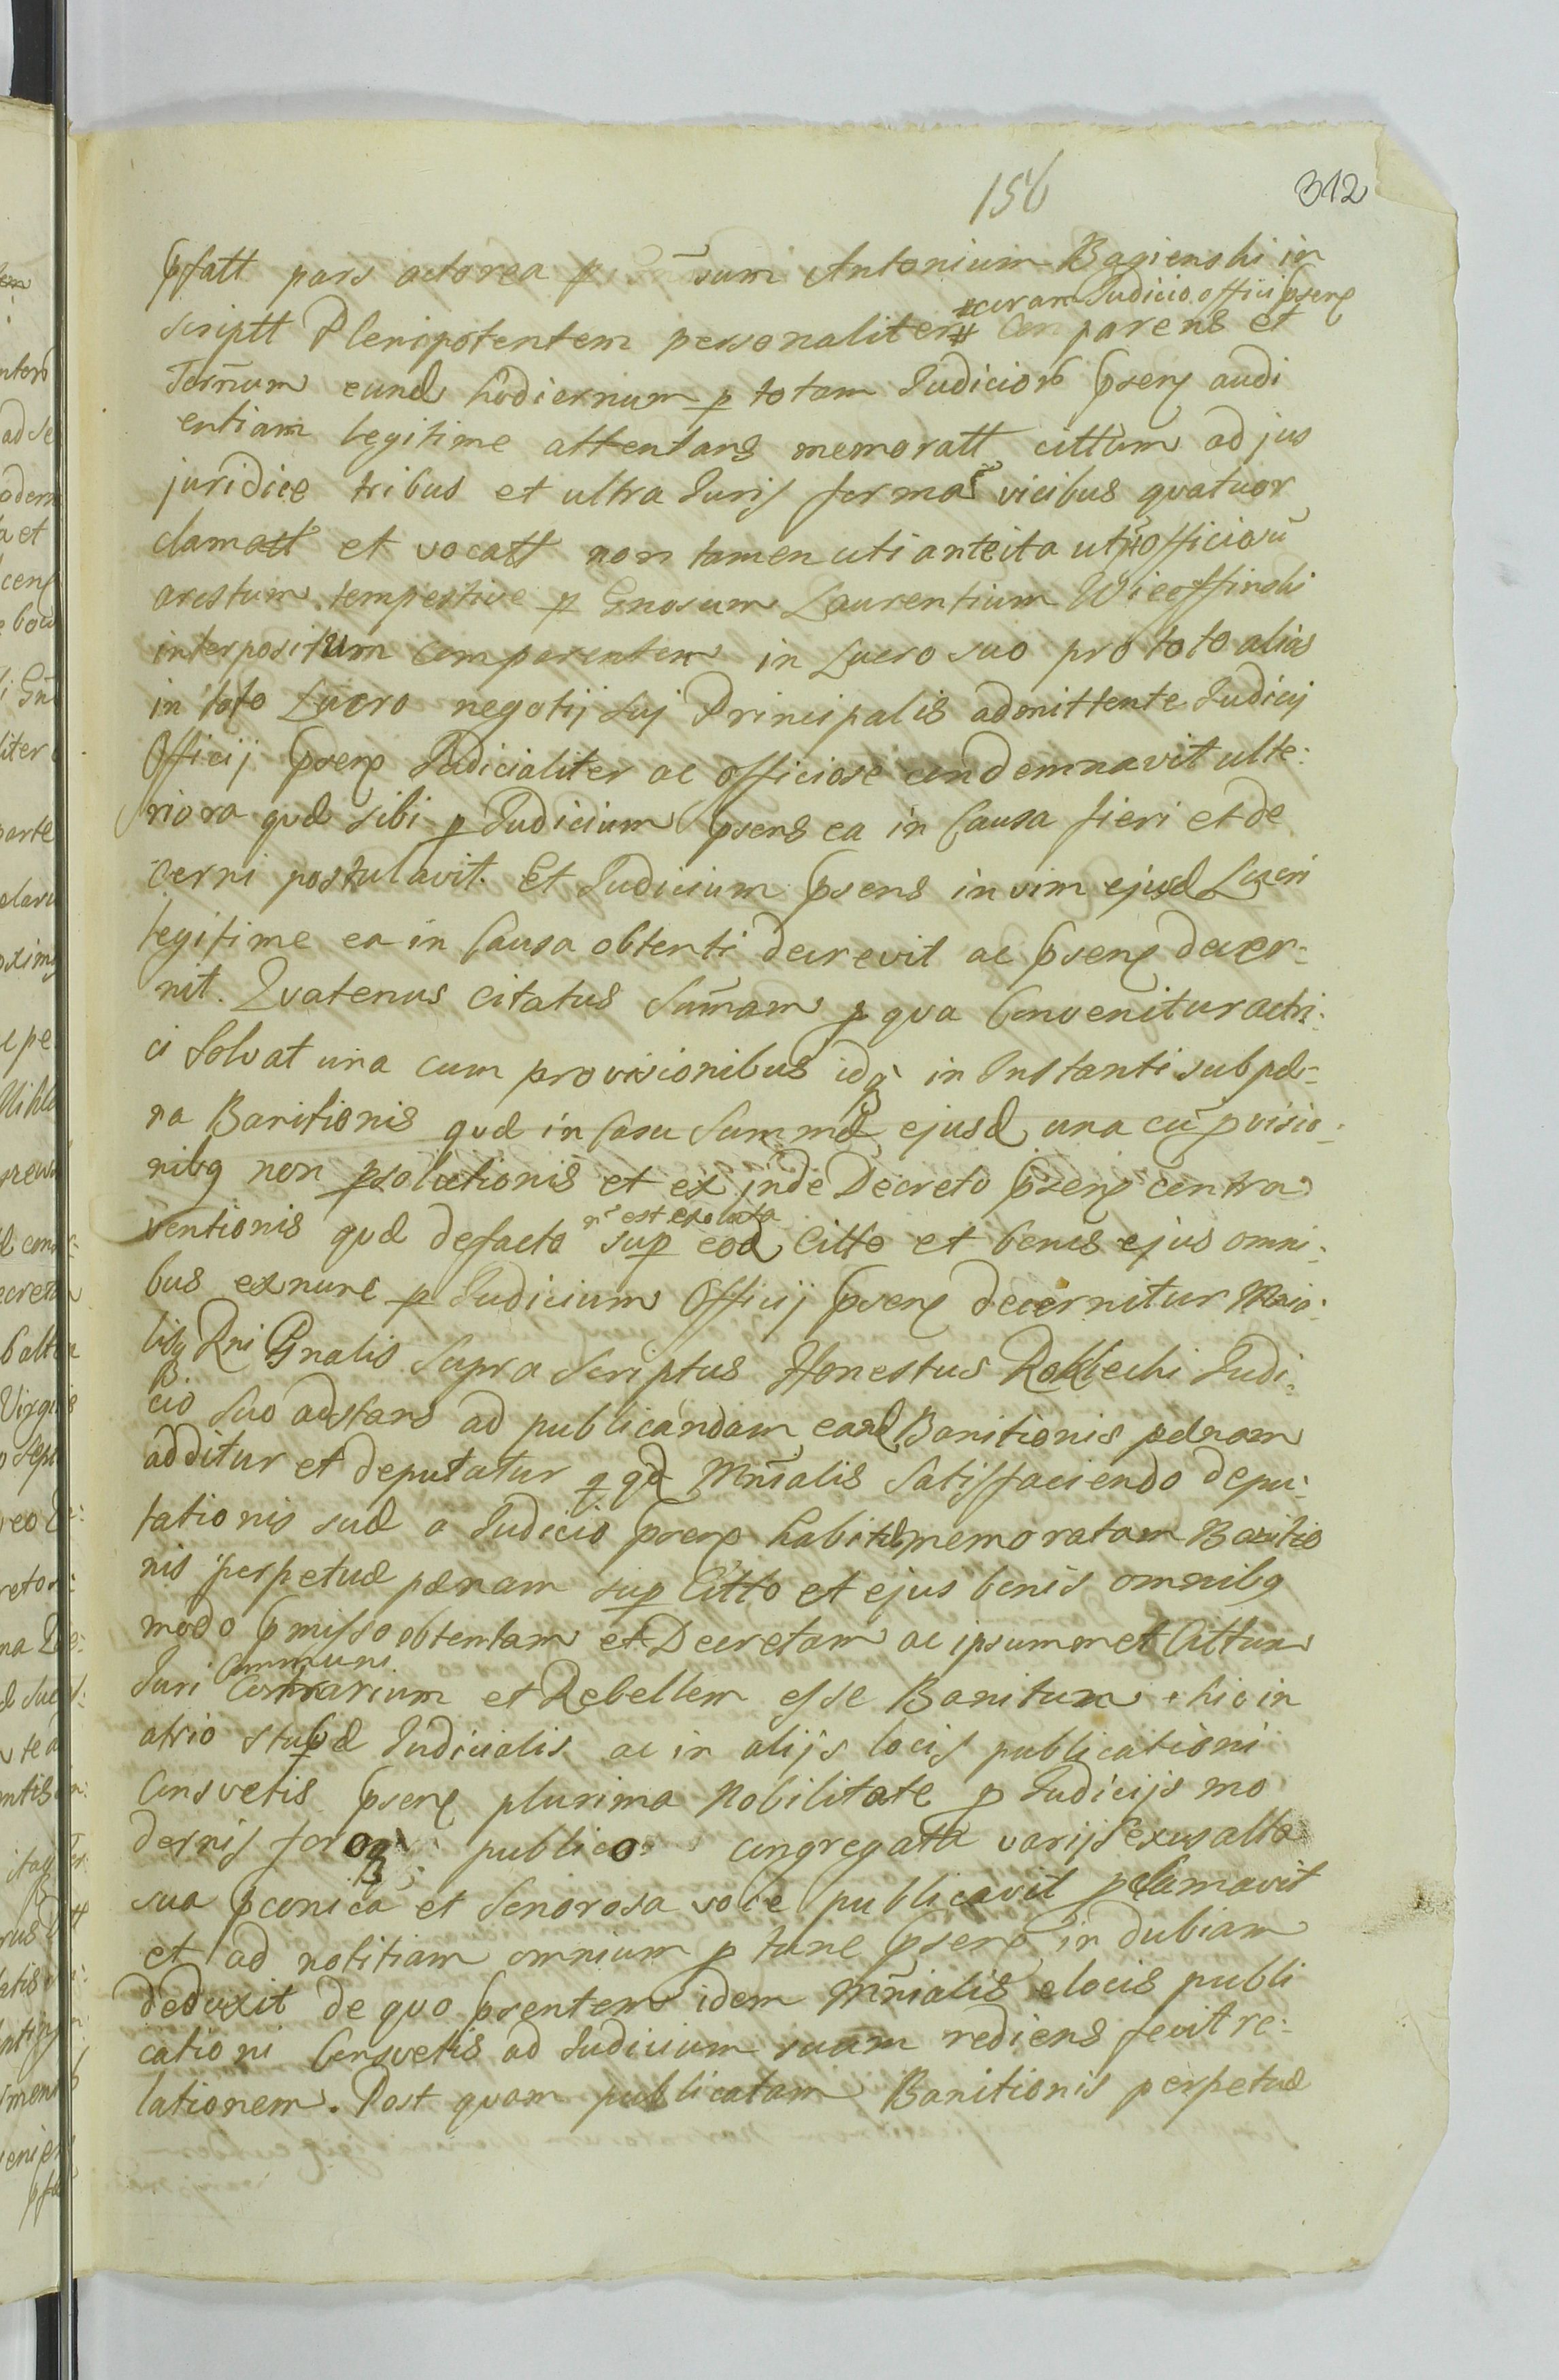 156
312
pfatt pars actorea p sum Antonium Bagienski in
#coram Judicio officij psenx
scriptt Plenipotentem personaliter # Comparens et
Termum eund hodiernum p totam Judicior psenx audi
entiam legitime attentans memoratt cittum ad jus
juridice tribus et ultra Juris formā vicibus quatuor
clamatt et vocatt non tamen uti anteita officiosū
arestum tempestive p Gnosum Laurentium
interpositum comparentem in Lucro suo pro toto alias
in toto Lucro negotij suj Principalis admittente Judicij
Officij psenx Judicialiter ac officiose condemnavit ulte:
riora qvd sibi p Judicium psens ea in Causa fieri et de
cerni postulavit. Et Judicium psens in vim ejusd Lucri
legitime ea in Causa obtenti decrevit ac psenx decer-
nit. Quatenus citatus Sumam p qva Convenitur actri:
ci Solvat una cum provisionibus idq in Instanti sub pæ-
na Banitionis qvd in Casu Summæ ejusd una cū pvisio:
nibq non psolutionis et ex inde Decreto psenx contra
n est exoluta
ventionis qvd defacto sup eod Citto et bonis ejus omni:
bus exnunc p Judicium Officij psenx decernitur Maia:
lisq Rni Gnalis Supra Scriptus Honestus Judi:
cio suo adstans ad publicandam eand Banitionis pænam
additur et deputatur q qd Mnialis Satisfaciendo depu:
tationis suæ a Judicio psenx habitæ memoratam Banitio
nis perpetuæ pænam sup Citto et ejus bonis omnibq
modo pmisso obtentam et Decretam ac ipsummet Cittum
Communi
Juri Contrarium et Rebellem esse Banitum hic in
atrio stubæ Judicialis ac in alijs locis publicationi
Consvetis psenx plurima Nobilitate p Judicijs mo
dernis foroq publico congregatta varij Sexus alta
sua pconica et Sonorosa voce publicavit pclamavit
et ad notitiam omnium p tunc psenx in dubiam
deduxit de quo psentem idem Mnialis e locis publi
cationi Consvetis ad Judicium suum rediens fecit re-
lationem. Post quam publicatam Banitionis perpetuæ